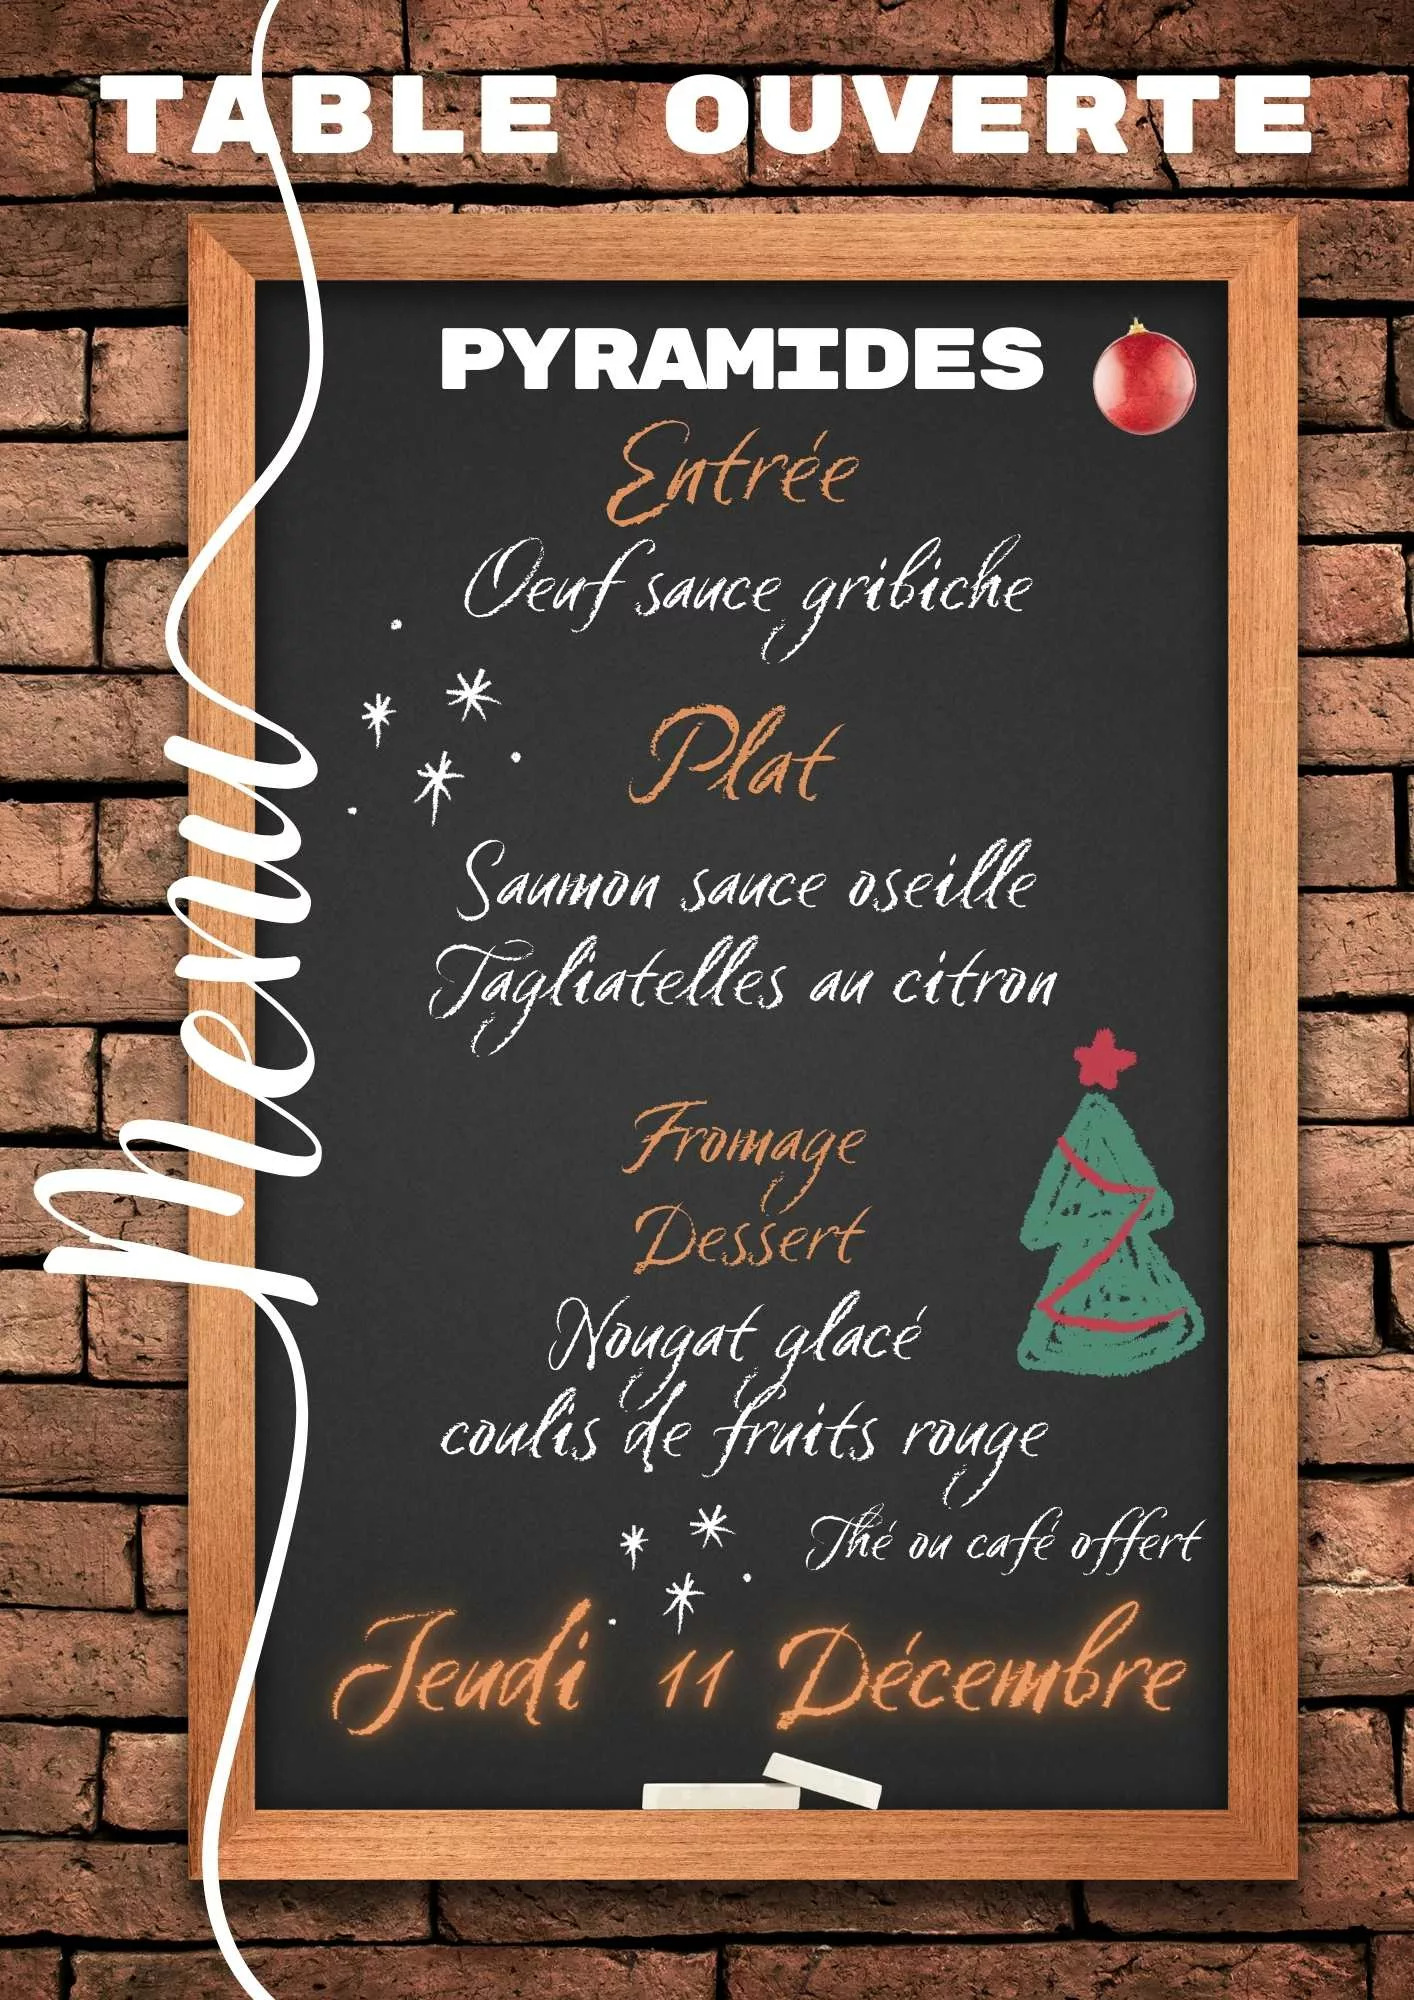 TABLE OUVERTE
Menu
PYRAMIDES
Entrée
Oeuf sauce gribiche
Plat
Saumon sauce oseille
Tagliatelles au citron
Fromage
Dessert
Nougat glacé
coulis de fruits rouge
Thé ou café offert
Jeudi 11 Décembre